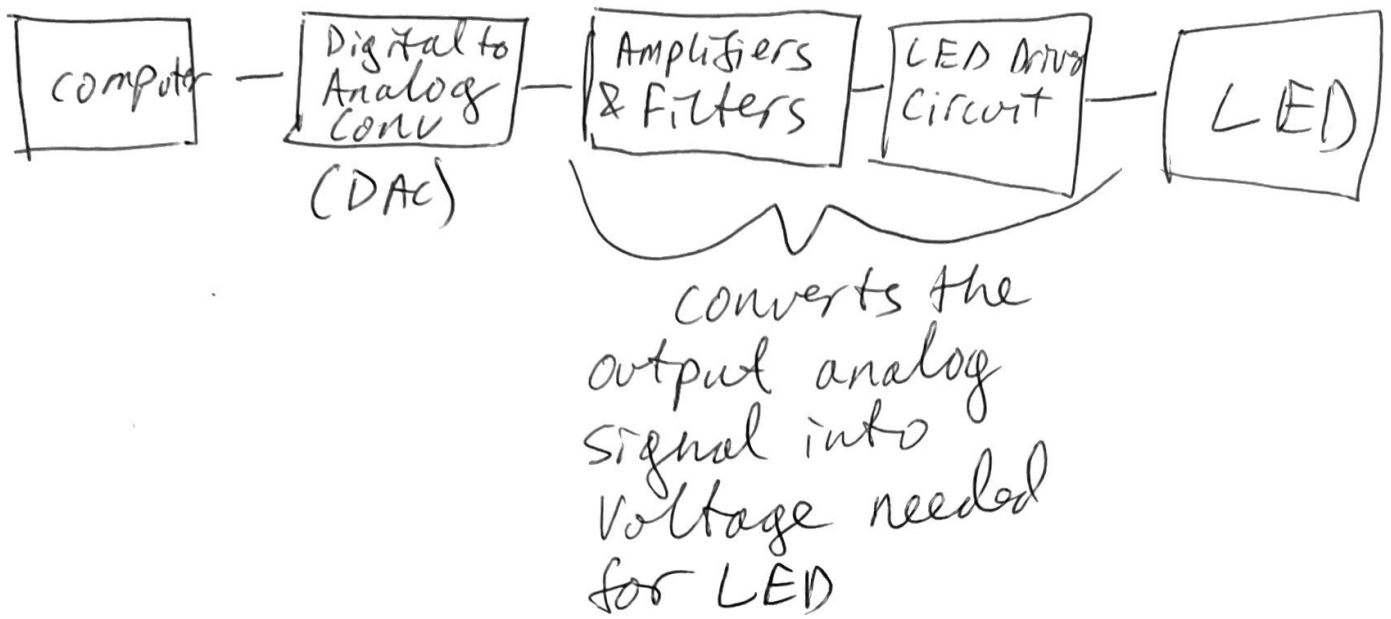 Computer
Digital to
Analog
Conv
(DAC)
Amplifiers
& Filters
LED Driver
Circuit
LED
converts the
output analog
signal into
voltage needed
for LED